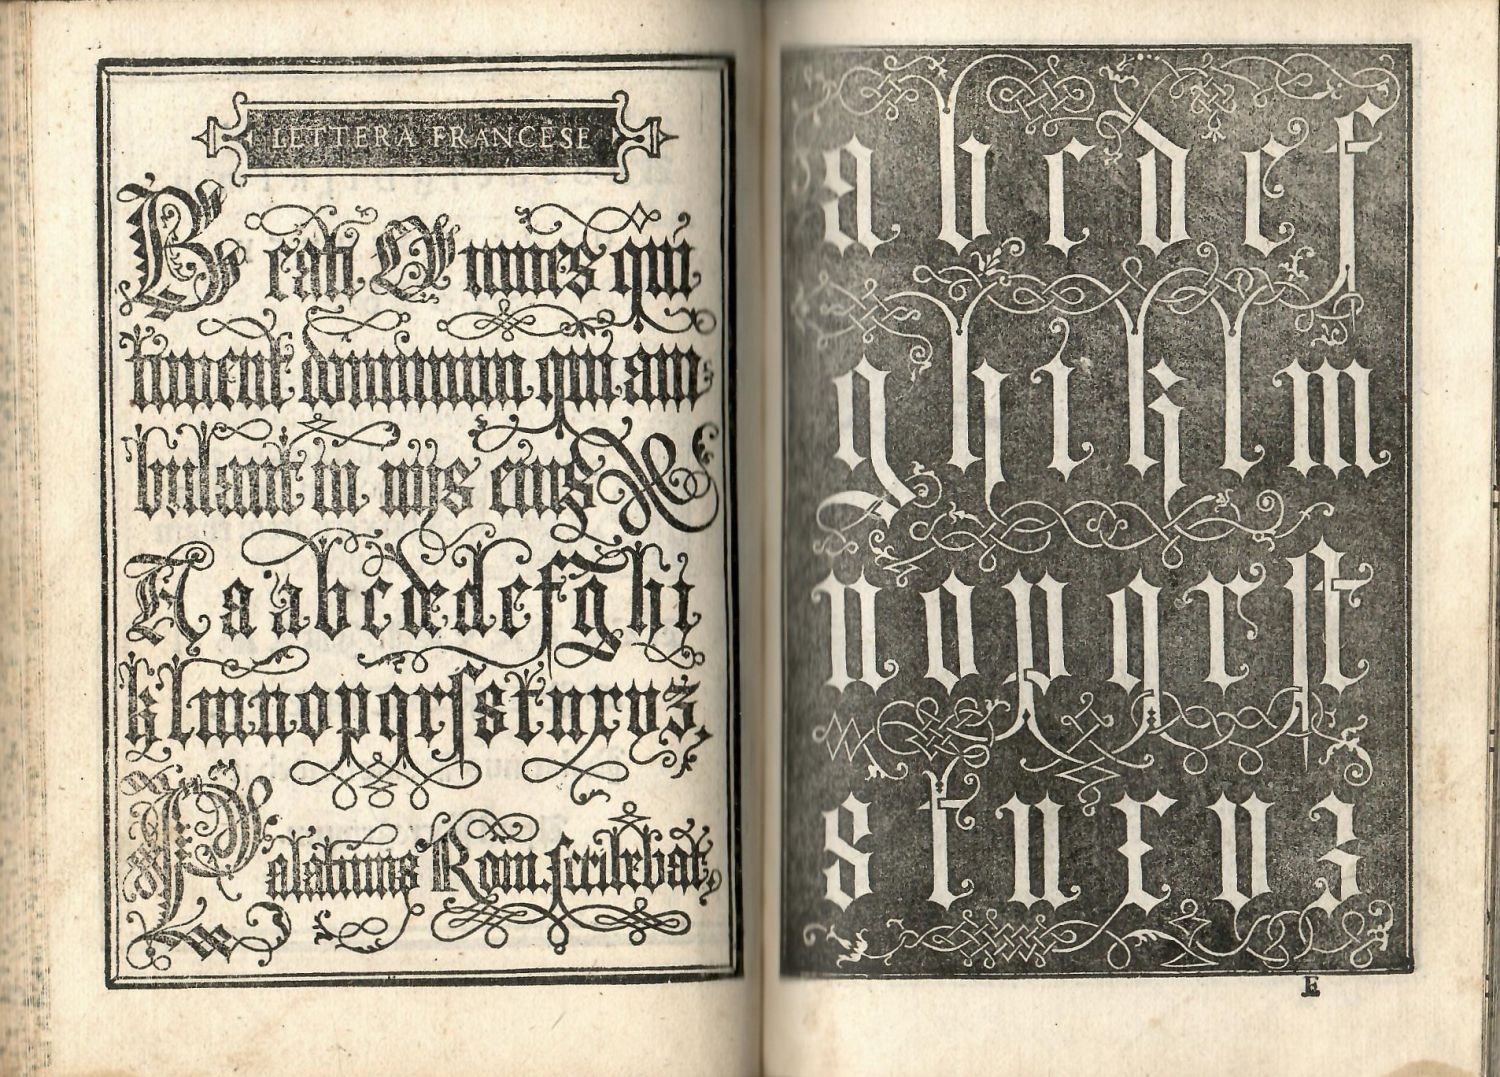 LETTERA FRANCESE
Beati Omnes qui
timent dominum qui am⸗
bulant in viis eius X
A a a b c d e d e f g h i
k l m n o p q r ſ s t u r v z.
Palatinus Rom. scribebat,
a b c d e f
g h i k l m
n o p q r ſt
s t u x v z
E